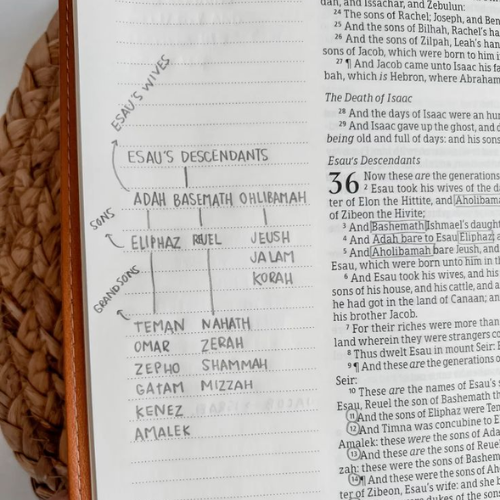 ESAU'S WIVES
ESAU'S DESCENDANTS
ADAH BASEMATH OHLIBAMAH
SONS
ELIPHAZ RUEL JEUSH
JALAM
KORAH
GRANDSONS
TEMAN NAHATH
OMAR ZERAH
ZEPHO SHAMMAH
GATAM MIZZAH
KENEZ
AMALEK
dan, and Issachar, and Zebulun:
24 The sons of Rachel; Joseph, and Ben
25 And the sons of Bilhah, Rachel's ha
26 And the sons of Zilpah, Leah's han
sons of Jacob, which were born to him i
27 ¶ And Jacob came unto Isaac his fa
bah, which is Hebron, where Abraham
The Death of Isaac
28 And the days of Isaac were an hu
29 And Isaac gave up the ghost, and d
being old and full of days: and his sons
Esau's Descendants
36 Now these are the generations
2 Esau took his wives of the da
ter of Elon the Hittite, and Aholibama
of Zibeon the Hivite;
3 And Bashemath Ishmael's daught
4 And Adah bare to Esau Eliphaz
5 And Aholibamah bare Jeush, and
Esau, which were born unto him in th
6 And Esau took his wives, and his
sons of his house, and his cattle, and a
he had got in the land of Canaan; an
his brother Jacob.
7 For their riches were more than
land wherein they were strangers co
8 Thus dwelt Esau in mount Seir: E
9 ¶ And these are the generations o
Seir:
10 These are the names of Esau's s
Esau, Reuel the son of Bashemath th
11 And the sons of Eliphaz were Tem
12 And Timna was concubine to E
Amalek: these were the sons of Ada
13 And these are the sons of Reue
zah: these were the sons of Bashem
14 ¶ And these were the sons of Aho
ter of Zibeon, Esau's wife: and she b